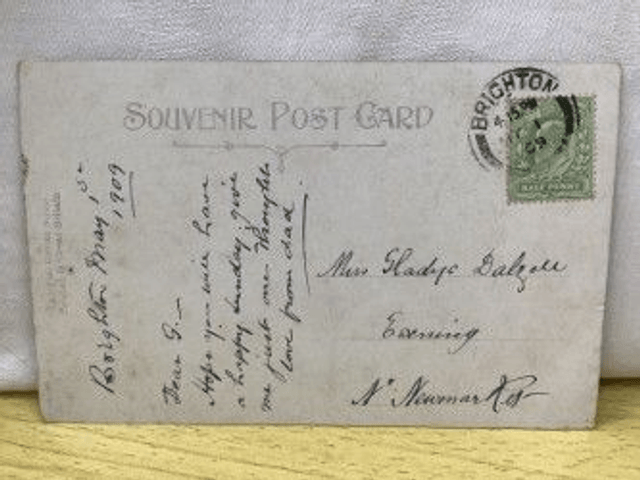 SOUVENIR POST CARD
BRIGHTON
4.15 PM
1
09
HALF PENNY
Brighton May 1st
1909
Dear G.—
Hope you will have
a happy Sunday, give
me just one thought
love from dad.
Miss Gladys Dalzell
Exning
Nr Newmarket